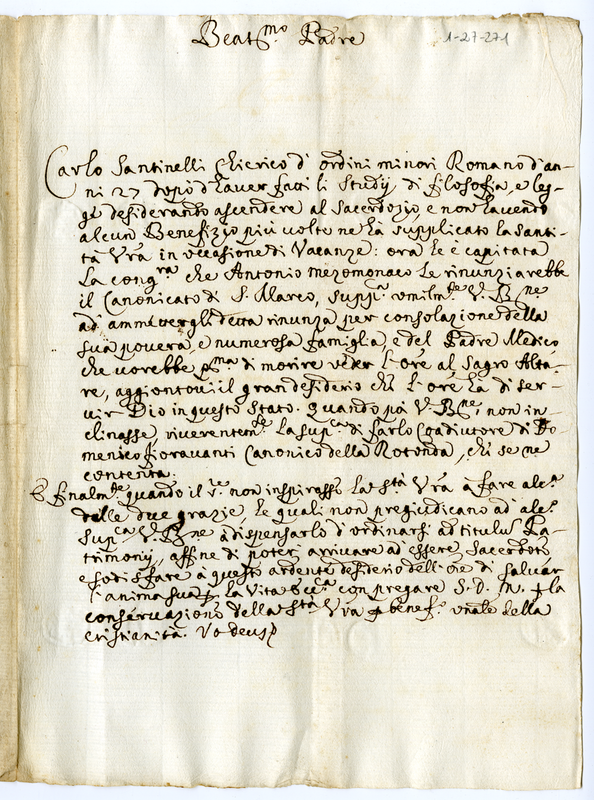 Beat.mo Padre
1-27-271
Carlo Santinelli Chierico d'ordini minori Romano d'an-
ni 27 dopò d'haver fatti li Studij di filosofia, e leg-
gi desiderando ascendere al Sacerdozio e non havendo
alcun Benefizio più volte ne hà supplicato la Santi-
tà Vra in occasione di Vacanze: ora le è capitata
La cong.ra che Antonio mezomonaco Le rinunziarebbe
il Canonicato di S. Marco, supp.ca umilm.te V. B.ne
ad' ammettergli detta rinunza per consolazione della
sua povera, e numerosa famiglia, e del Padre Medico
che vorebbe p.ma di morire veder l'ore al Sagro Alta-
re, aggiontovi il gran desiderio che l'ore hà di ser-
vir Dio in questo Stato. Quando poi V. B.ne non in-
clinasse, riverentem.te La sup.ca di farlo Coadiutore di Do-
menico fioravanti Canonico della Rotonda, che se ne
contenta.
E finalm.te quando il S.re non inspirasse La S.tà Vra à fare alc.a
delle due grazie le quali non pregiudicano ad' alc.o
sup.ca V. B.ne à dispensarlo d'ordinarsi ad titulum Pa-
trimonij, affine di poter arrivare ad essere Sacerdote
e sodisfare à questo ardente desiderio dell'ore di salvar
l'anima sua, La Vita &c.a con pregare S. D. M. p la
conservazione della S.tà Vra p benef.o unale della
cristianità. Vo deus